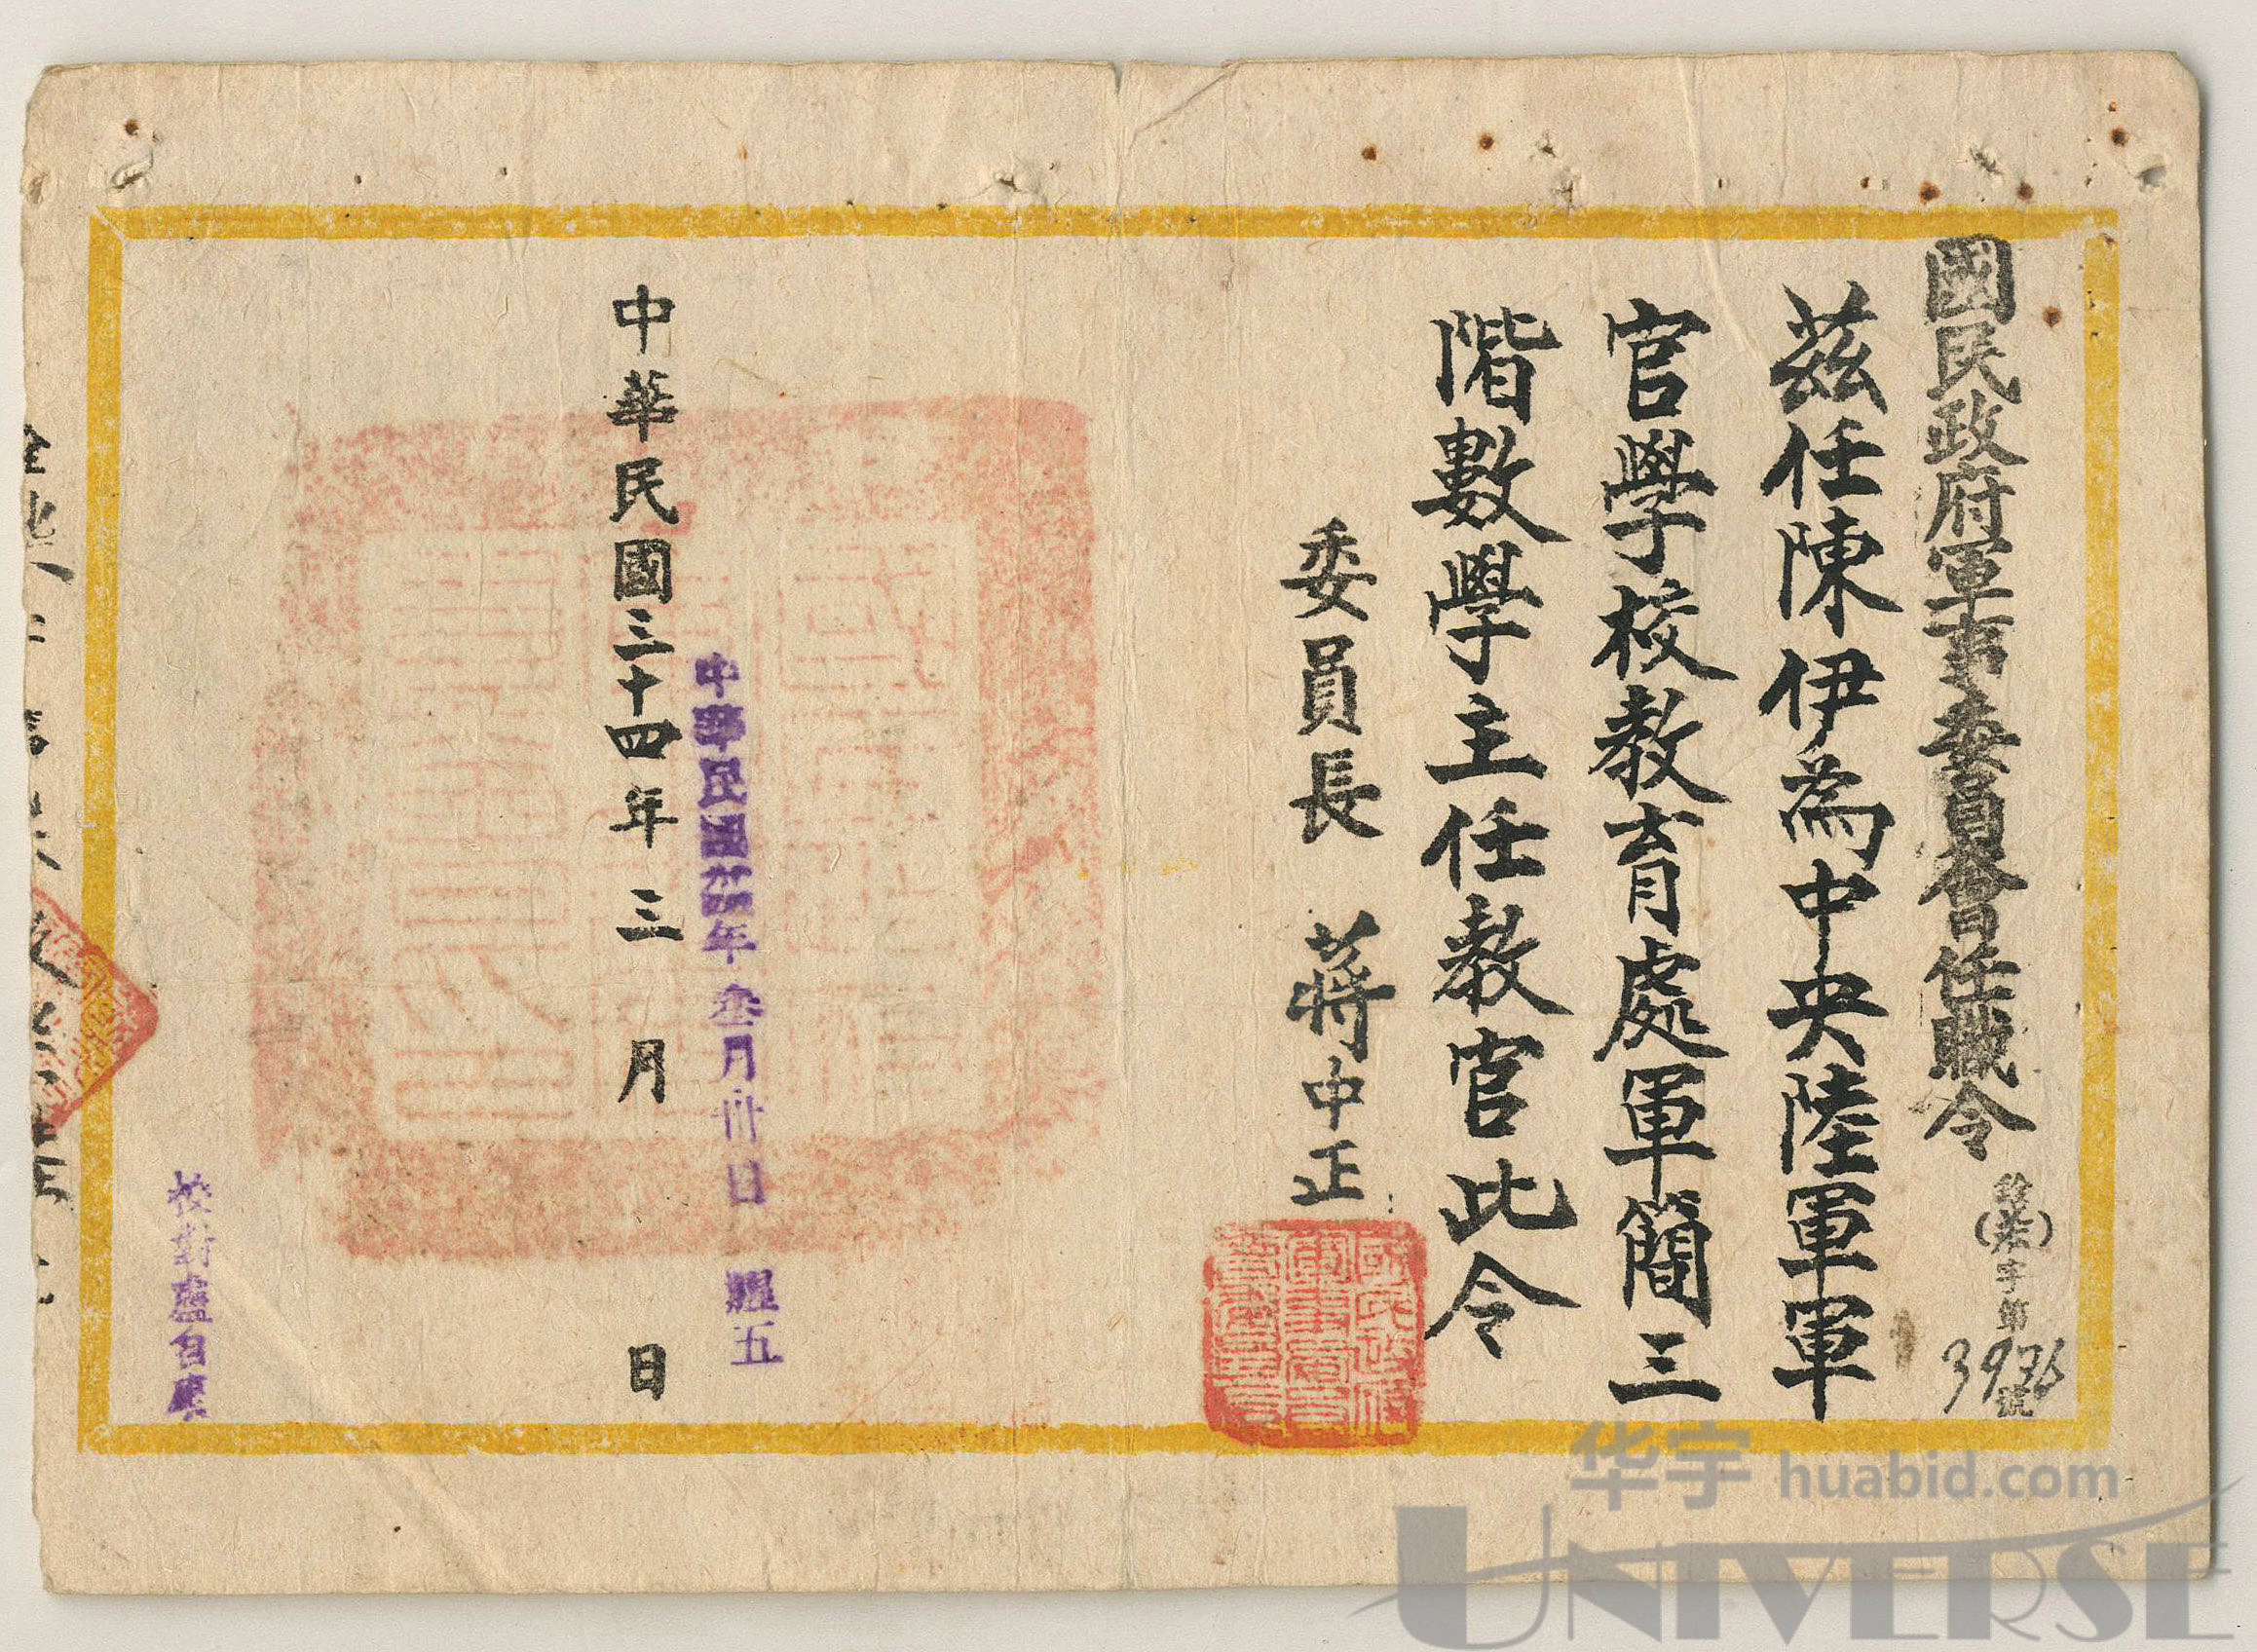 國民政府軍事委員會任職令
字第3976號
茲任陳伊為中央陸軍軍
官學校教育處軍簡三
階數學主任教官此令
委員長 蔣中正
國民政府軍事委員會委員長
中華民國卅四年叁月卅日
中華民國三十四年三月 日
校對盧自
华宇 huabid.com
UNIVERSE